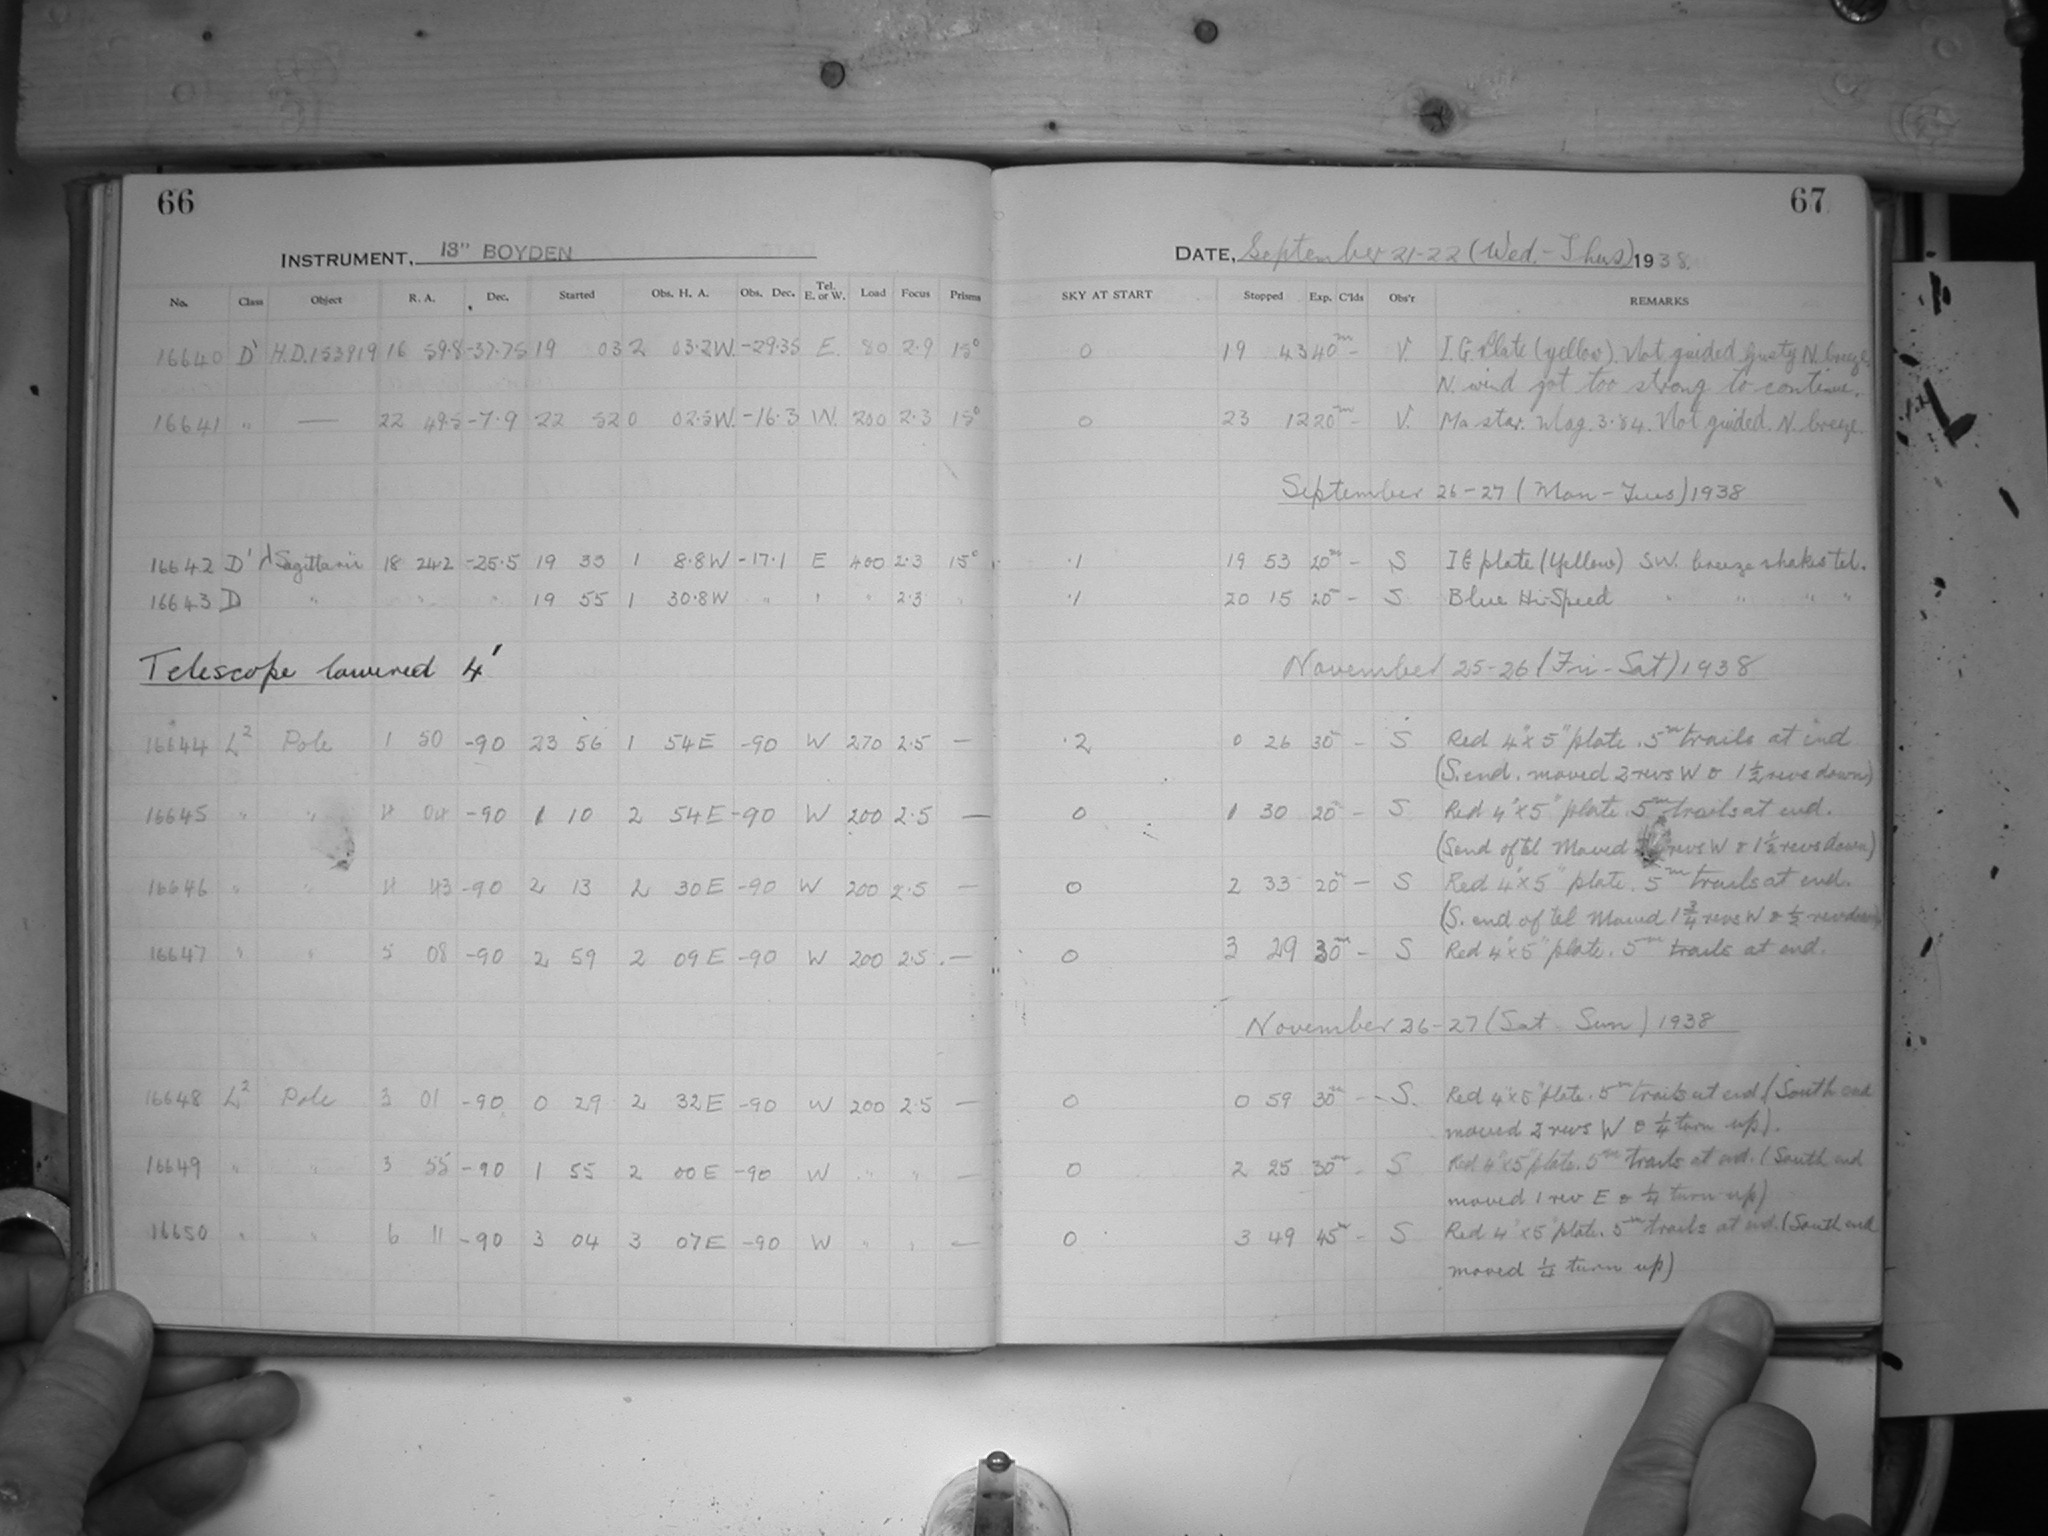 66
67
INSTRUMENT, 13" BOYDEN
DATE, September 21-22 (Wed.-Thus) 1938.
No. Class Object R. A. Dec. Started Obs. H. A. Obs. Dec. Tel. E. or W. Load Focus Prisms SKY AT START Stopped Exp. C'lds Obs'r REMARKS
16640 D' H.D.153919 16 59.8 -37.75 19 03 2 03.2W. -29.35 E. 80 2.9 15° 0 19 43 40m - V. I.G. Plate (yellow). Not guided. Gusty N. breeze.
N. wind got too strong to continue.
16641 " — 22 49.5 -7.9 22 52 0 02.5W. -16.3 W. 200 2.3 15° 0 23 12 20m - V. Ma star. Mag. 3.84. Not guided. N. breeze.
September 26-27 (Mon-Tues) 1938
16642 D' λ Sagittarii 18 24.2 -25.5 19 33 1 8.8W -17.1 E 400 2.3 15° .1 19 53 20m - S IG plate (Yellow) SW. breeze shakes tel.
16643 D " " " " 19 55 1 30.8W " " " 2.3 " .1 20 15 20 - S Blue Hi-Speed " " " "
Telescope lowered 4'
November 25-26 (Fri-Sat) 1938
16644 L² Pole 1 50 -90 23 56 1 54E -90 W 270 2.5 — .2 0 26 30 - S Red 4"x5" plate. 5m trails at end
(S. end. moved 2 revs W & 1½ revs down)
16645 " " 4 04 -90 1 10 2 54E -90 W 200 2.5 — 0 1 30 20m - S Red 4"x5" plate. 5m trails at end.
(S end of tel Moved revs W & 1½ revs down)
16646 " " 4 43 -90 2 13 2 30E -90 W 200 2.5 — 0 2 33 20m - S Red 4"x5" plate. 5m trails at end.
(S. end of tel Moved 1¾ revs W & ½ rev down)
16647 " " 5 08 -90 2 59 2 09E -90 W 200 2.5 — 0 3 29 30m - S Red 4"x5" plate. 5m trails at end.
November 26-27 (Sat-Sun) 1938
16648 L² Pole 3 01 -90 0 29 2 32E -90 W 200 2.5 — 0 0 59 30m - S. Red 4"x5" plate. 5m trails at end (South end
moved 2 revs W & ¼ turn up).
16649 " " 3 55 -90 1 55 2 00E -90 W " " — 0 2 25 30m - S Red 4"x5" plate. 5m trails at end. (South end
moved 1 rev E & ¼ turn up)
16650 " " 6 11 -90 3 04 3 07E -90 W " " — 0 3 49 45m - S Red 4"x5" plate. 5m trails at end. (South end
moved ¼ turn up)